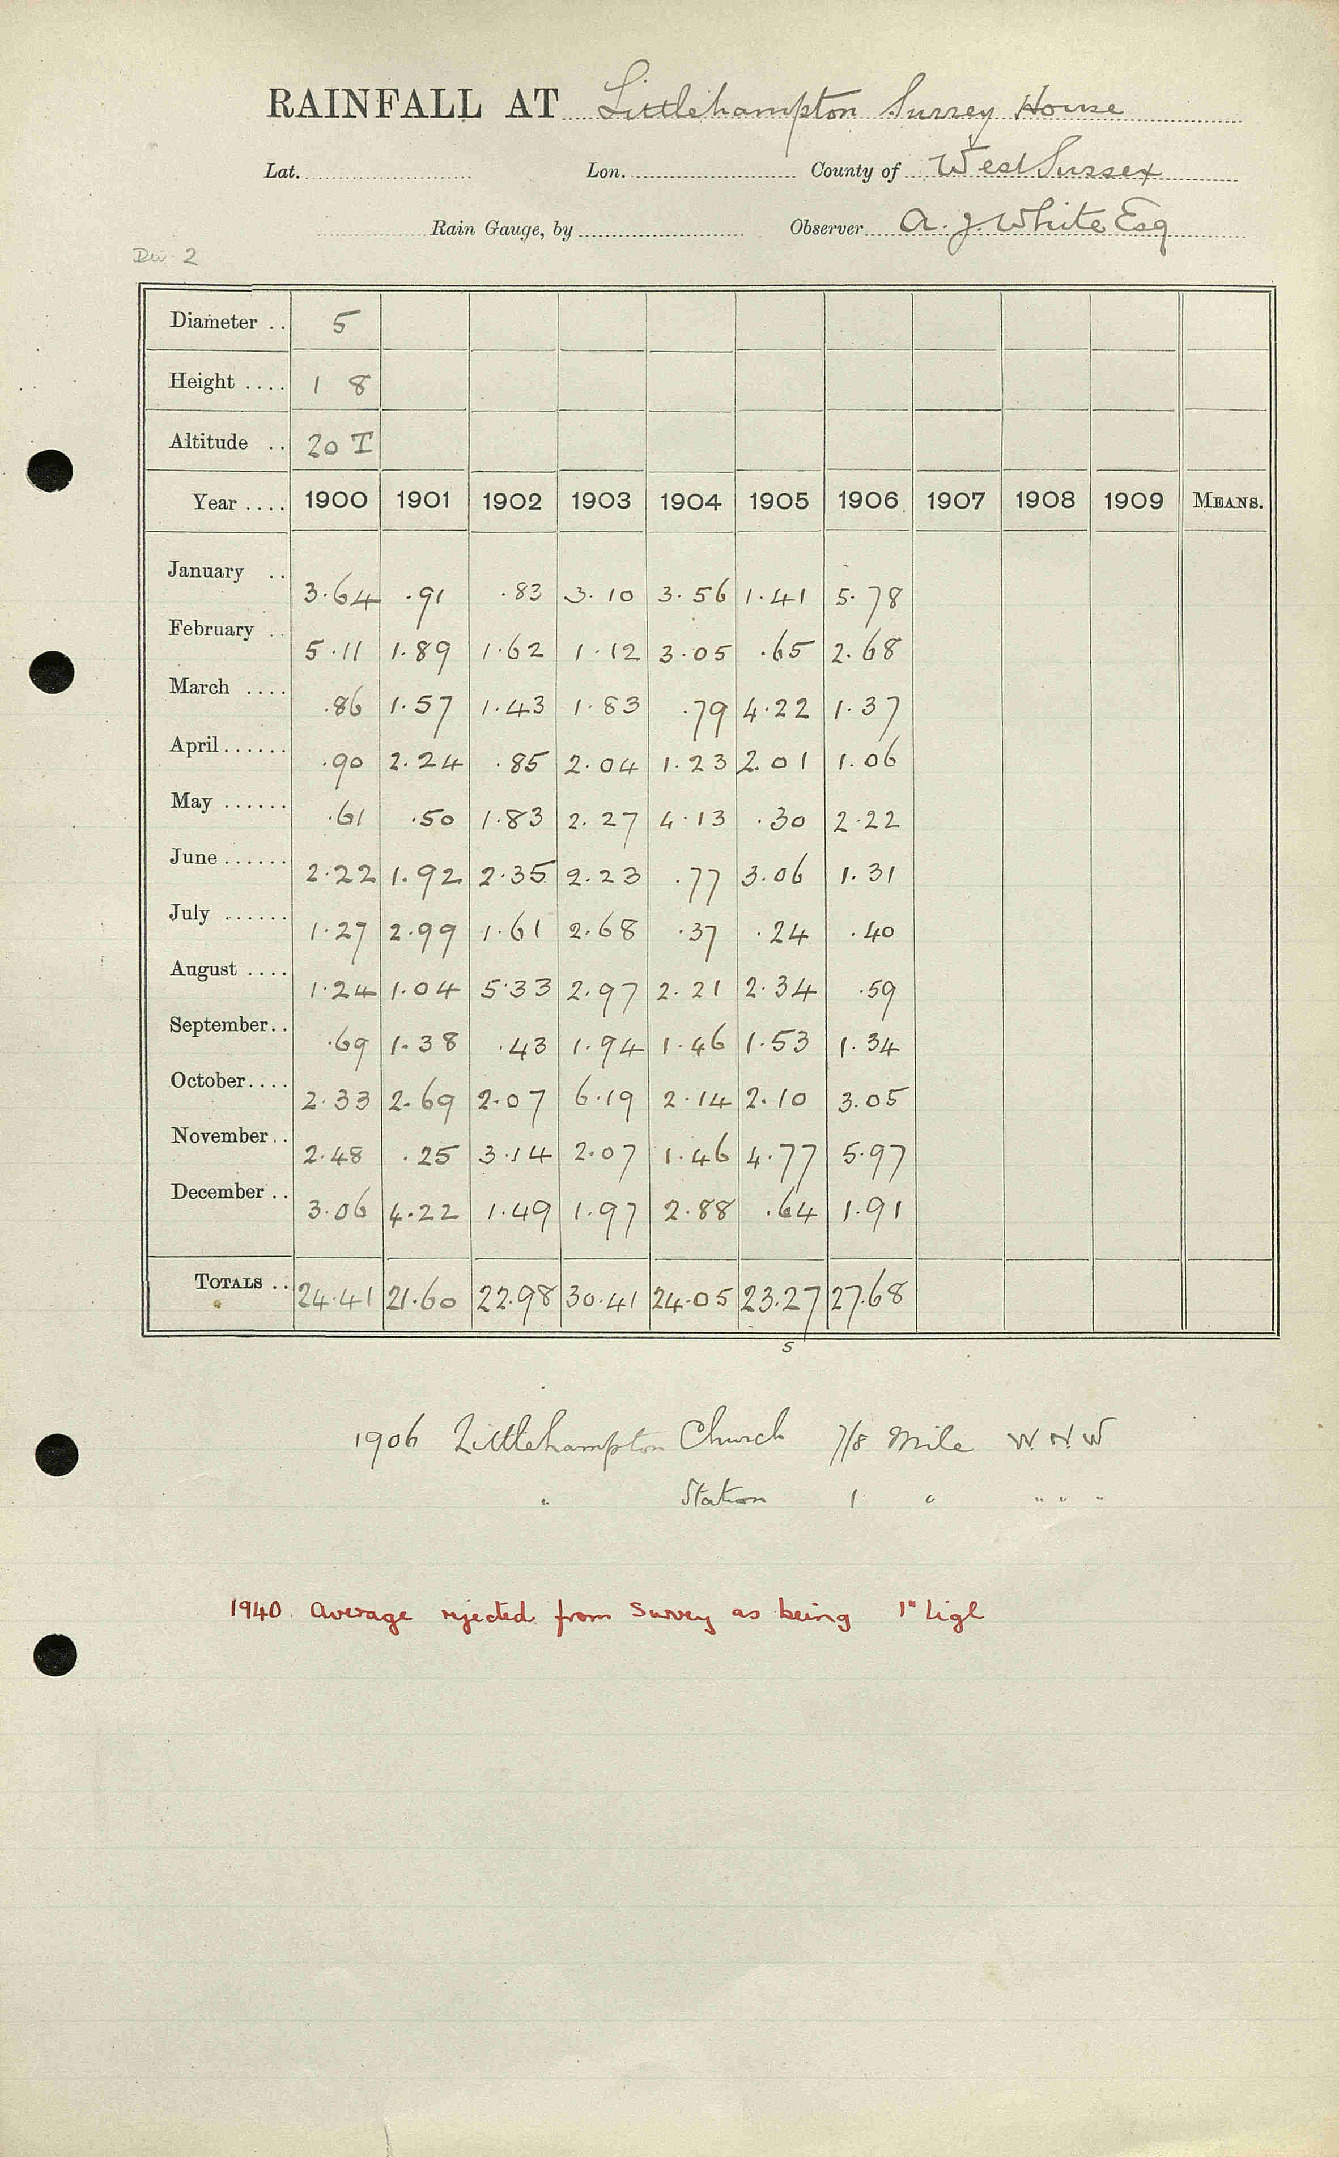 RAINFALL AT Littlehampton Surrey House
Lat. Lon. County of West Sussex
Rain Gauge, by Observer A. J. White Esq
Div 2
Diameter .. 5
Height .... 1 8
Altitude .. 20 T
Year .... 1900 1901 1902 1903 1904 1905 1906 1907 1908 1909 MEANS.
January .. 3.64 .91 .83 3.10 3.56 1.41 5.78
February .. 5.11 1.89 1.62 1.12 3.05 .65 2.68
March .... .86 1.57 1.43 1.83 .79 4.22 1.37
April...... .90 2.24 .85 2.04 1.23 2.01 1.06
May ...... .61 .50 1.83 2.27 4.13 .30 2.22
June ...... 2.22 1.92 2.35 2.23 .77 3.06 1.31
July ...... 1.27 2.99 1.61 2.68 .37 .24 .40
August .... 1.24 1.04 5.33 2.97 2.21 2.34 .59
September.. .69 1.38 .43 1.94 1.46 1.53 1.34
October.... 2.33 2.69 2.07 6.19 2.14 2.10 3.05
November.. 2.48 .25 3.14 2.07 1.46 4.77 5.97
December .. 3.06 4.22 1.49 1.97 2.88 .64 1.91
TOTALS .. 24.41 21.60 22.98 30.41 24.05 23.27 27.68
s
1906 Littlehampton Church 7/8 Mile W N W
" Station 1 " " " "
1940. Average rejected from Survey as being 1" ligl